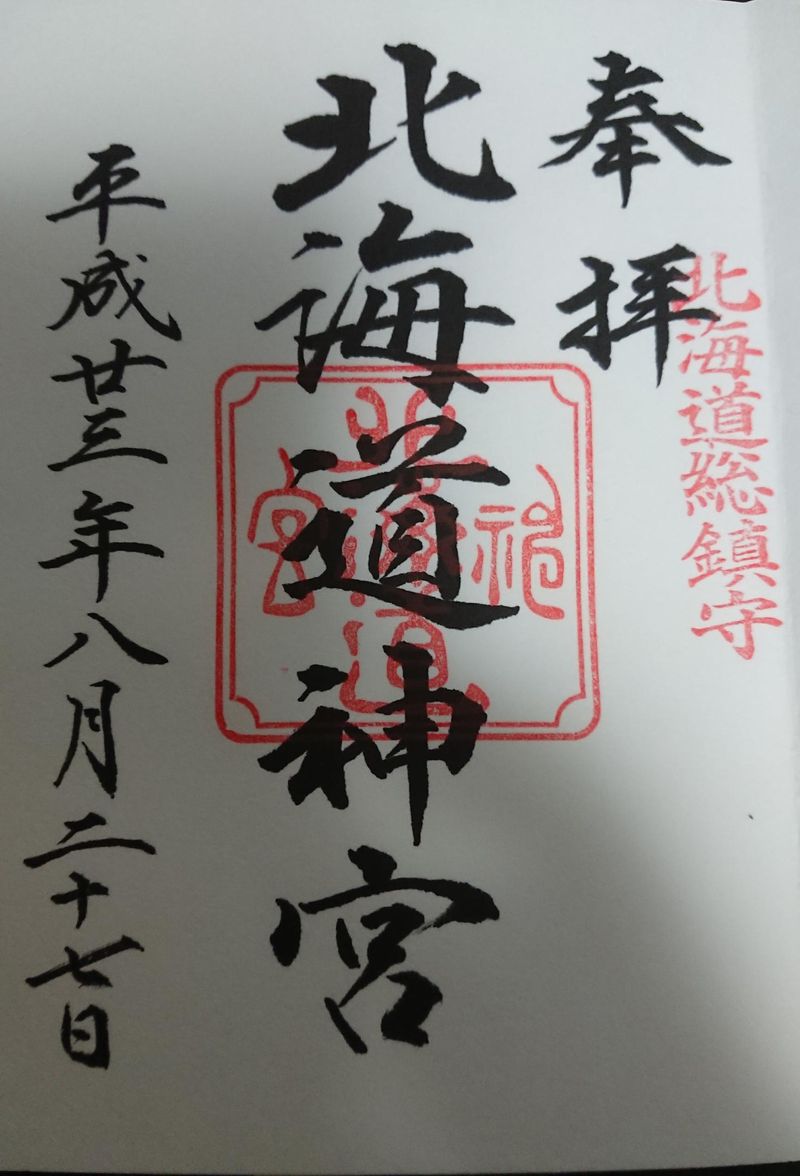 北海道総鎮守
奉拝
北海道神宮
北海道神宮
平成廿三年八月二十七日